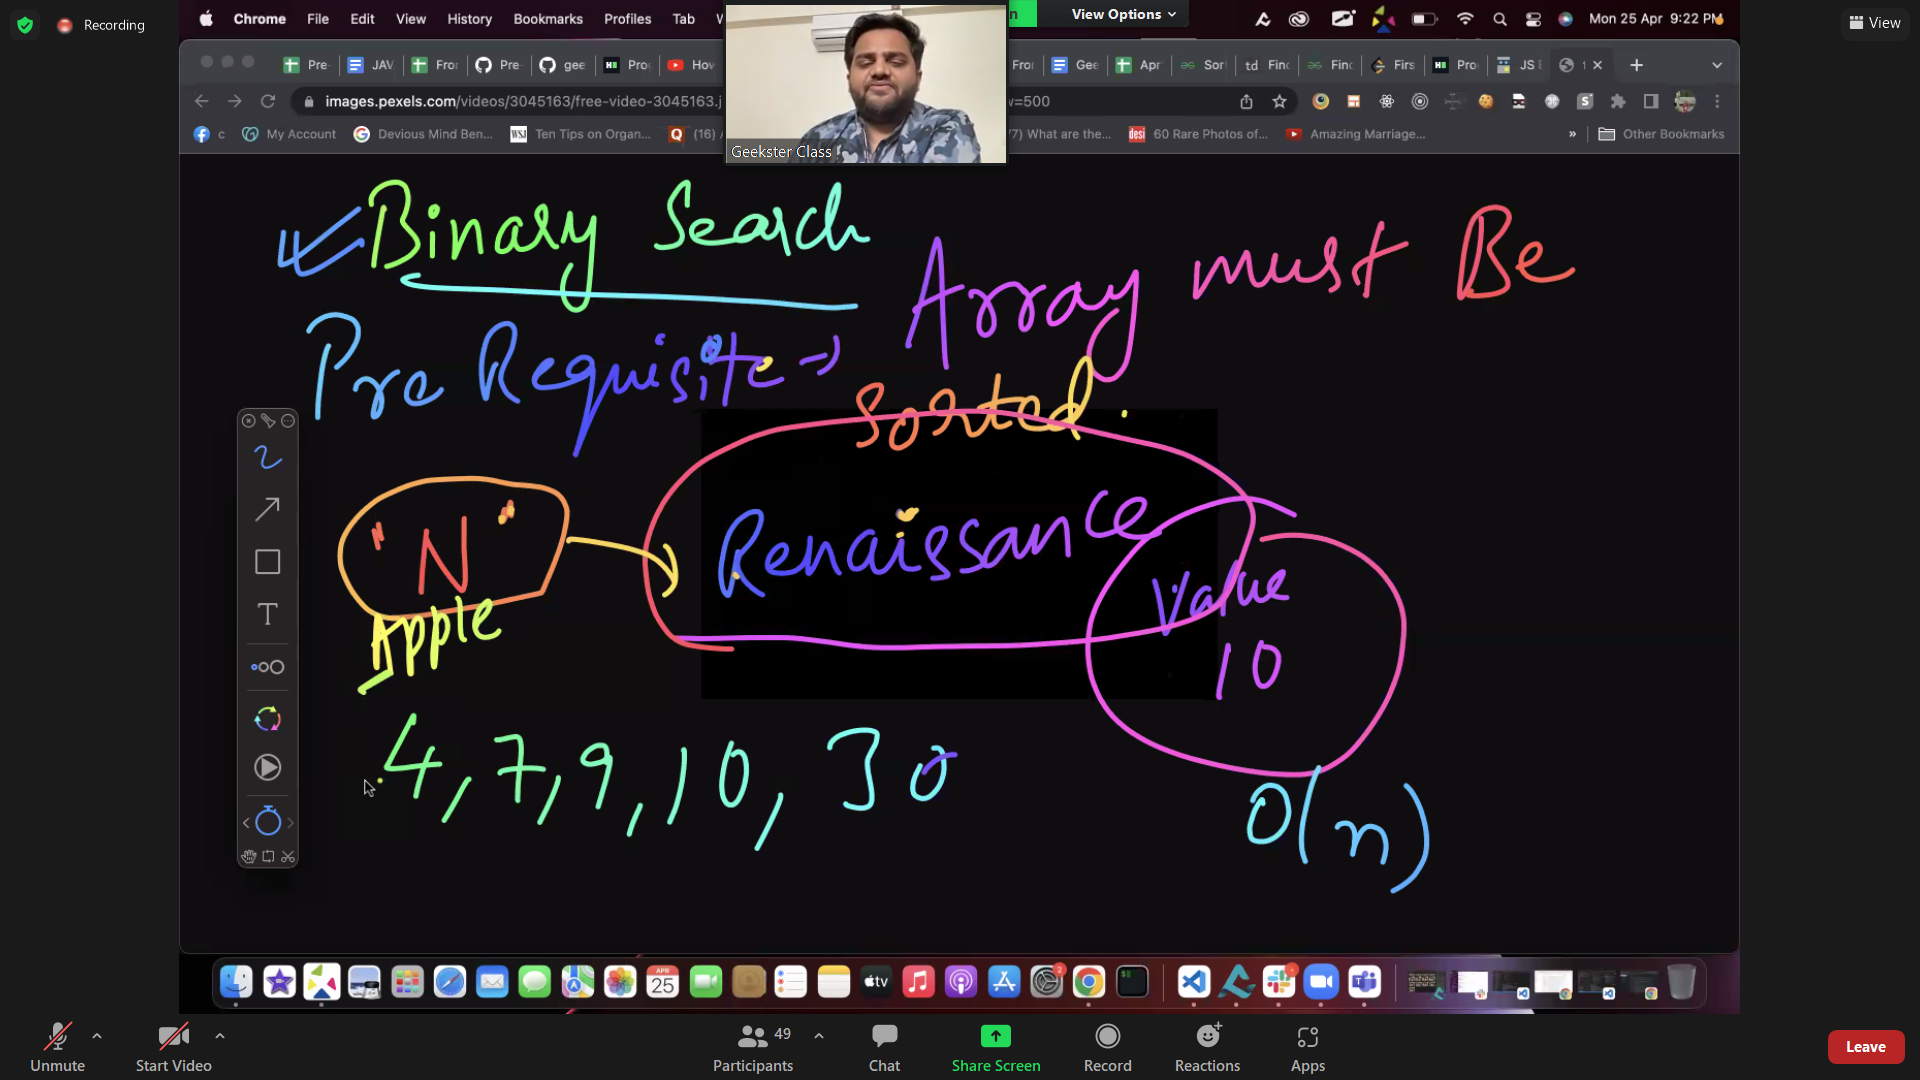 Recording
Chrome File Edit View History Bookmarks Profiles Tab
View Options
Mon 25 Apr 9:22 PM
View
Pre- JAV Fror Pre- gee Pro How Fror Gee Apr Sor td Finc Finc Firs Pro JS E
images.pexels.com/videos/3045163/free-video-3045163.j w=500
c My Account Devious Mind Ben... Ten Tips on Organ... (16) /7) What are the... 60 Rare Photos of... Amazing Marriage... » Other Bookmarks
Geekster Class
Binary Search
Array must Be
Pre Requisite →
Sorted.
"N"
Renaissance
Apple
Value
10
4, 7, 9, 10, 30
O(n)
T
APR
25
tv
2
Unmute
Start Video
49
Participants
Chat
Share Screen
Record
Reactions
Apps
Leave